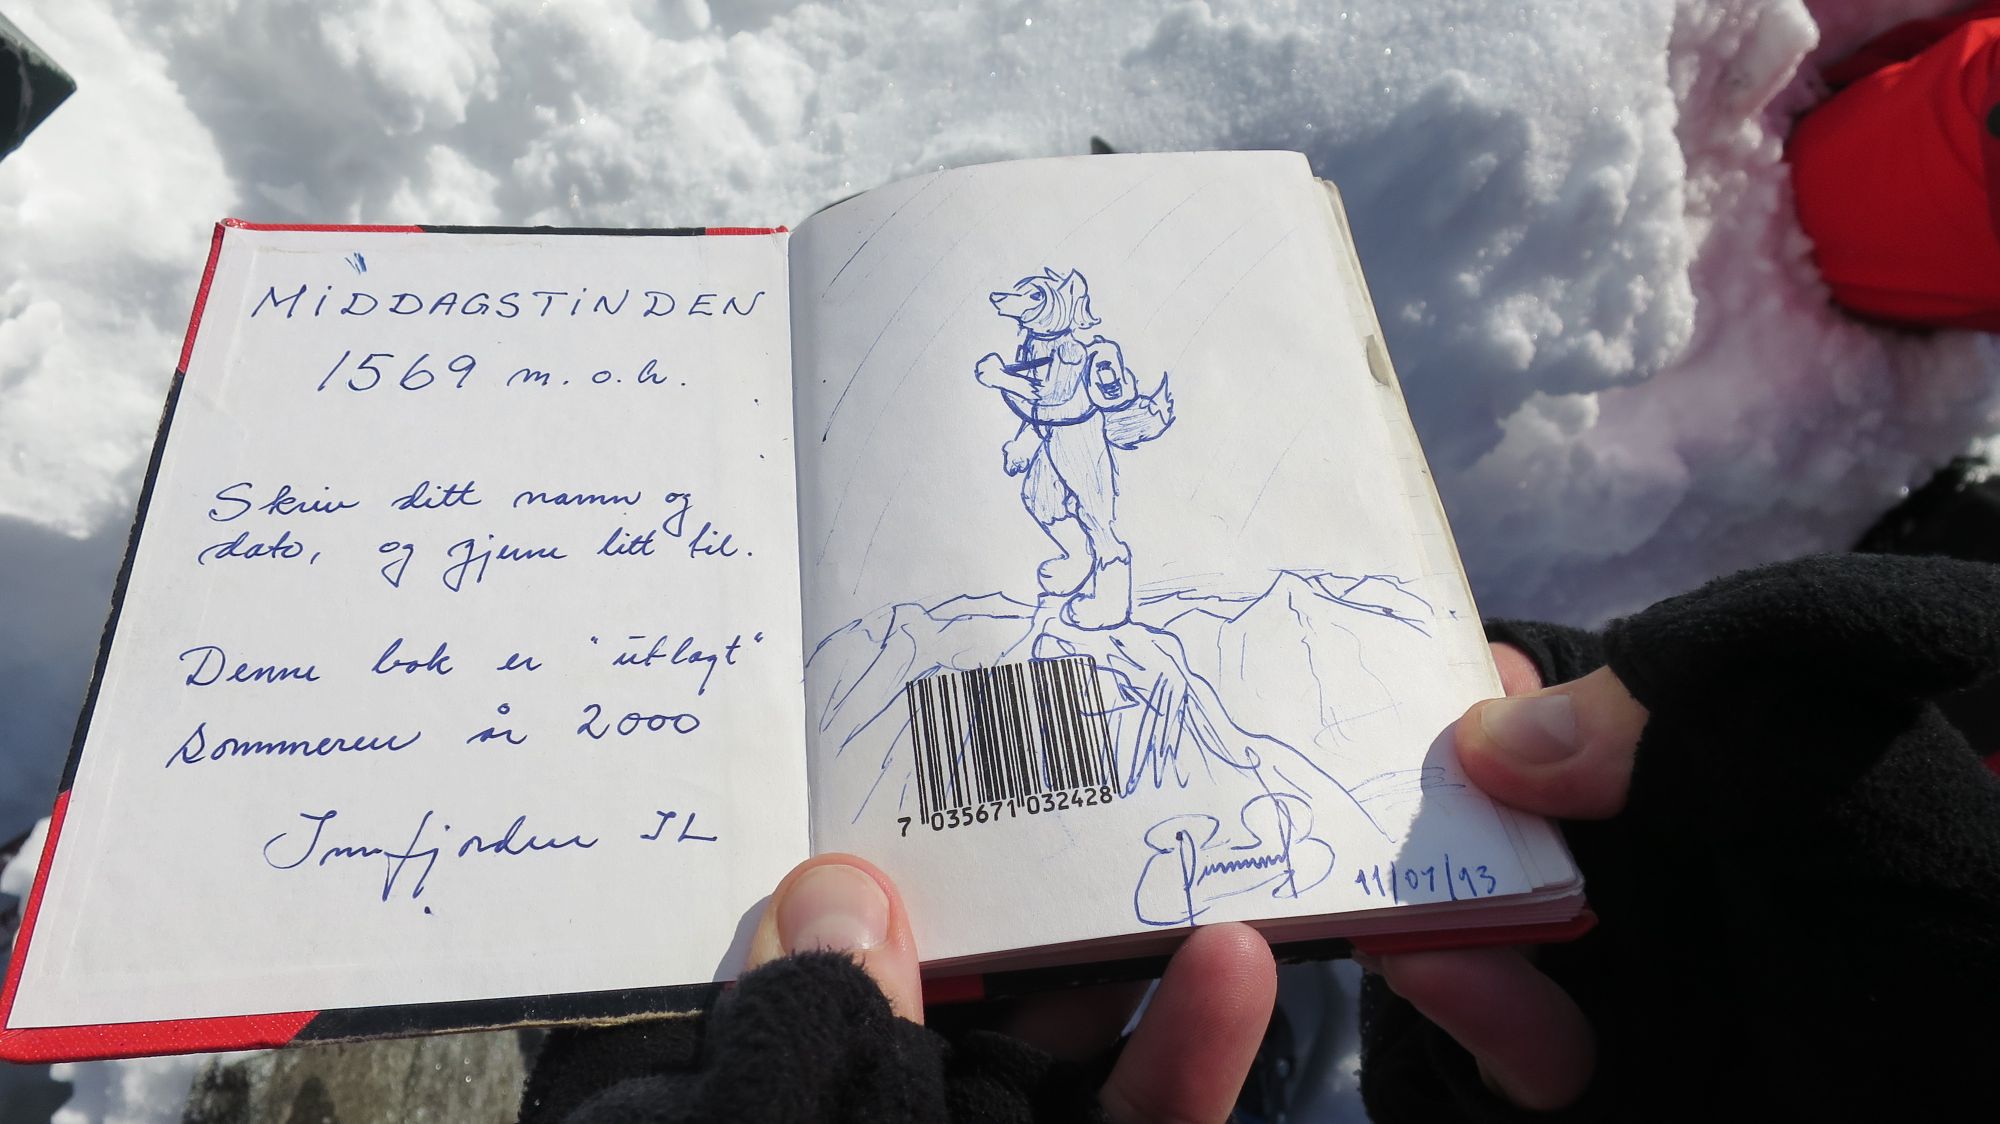 MiDDAGSTiNDEN
1569 m.o.h.
Skriv ditt namn og
dato, og gjerne litt til.
Denne bok er "utlagt"
sommeren år 2000
Innfjorden IL
7 035671 032428